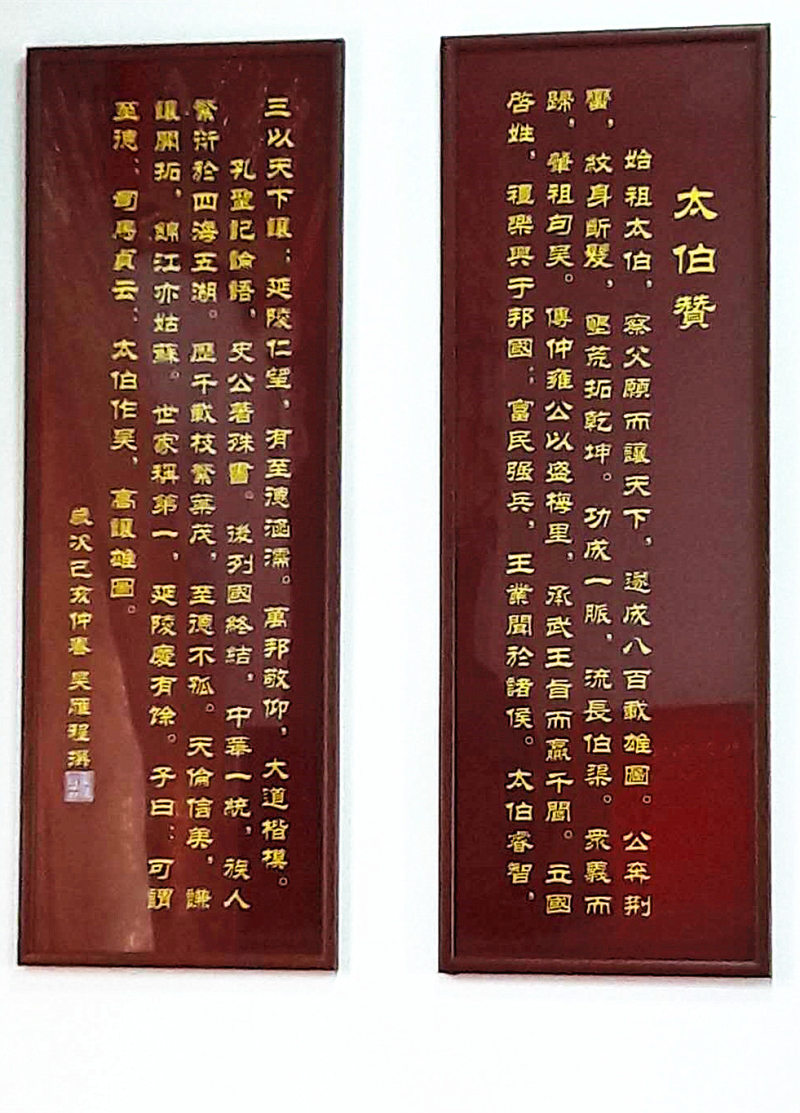 太伯贊
始祖太伯，察父願而讓天下，遂成八百載雄圖。公奔荆
蠻，紋身断髮，墾荒拓乾坤。功成一脈，流長伯渠。衆義而
歸，肇祖句吴。傳仲雍公以盛梅里，承武王旨而贏千閭。立國
啓姓，禮樂興于邦國；富民强兵，王業聞於諸侯。太伯睿智，
三以天下讓；延陵仁望，有至德涵濡。萬邦敬仰，大道楷模。
孔聖記論語，史公著殊書。後列國終結，中華一統，族人
繁衍於四海五湖。歷千載枝繁葉茂，至德不孤。天倫信美，謙
讓開拓，錦江亦姑蘇。世家稱第一，延陵慶有馀。子曰：可謂
至德；司馬貞云：太伯作吴，高讓雄圖。
歲次己亥仲春 吴雁程撰